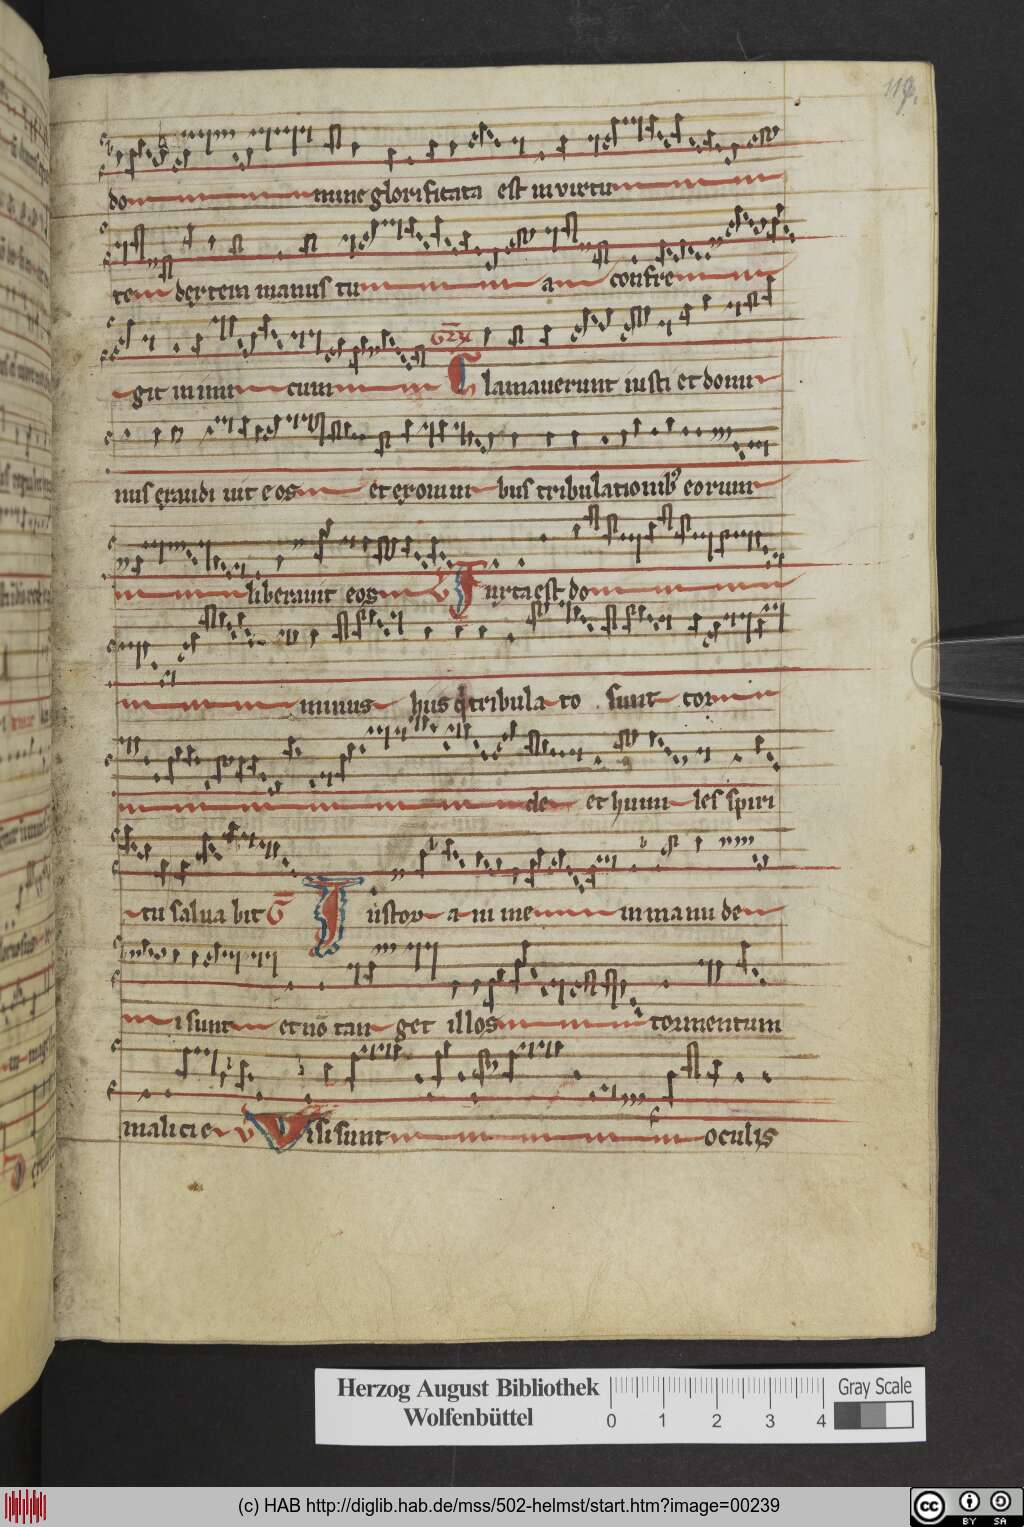 119.
do mine glorificata est in virtu
tem dextera manus tu a confre
git inimi cum Gr. Clamauerunt iusti et domi
nus exaudi uit eos et ex omni bus tribulationib' eorum
liberauit eos V Iuxta est do
minus his q tribula to sunt cor
de et humi les spiri
tu salua bit G Iustor a ni me in manu de
i sunt et nō tan get illos tormentum
malicie V Visi sunt oculis
Herzog August Bibliothek
Wolfenbüttel
0 1 2 3 4
Gray Scale
(c) HAB http://diglib.hab.de/mss/502-helmst/start.htm?image=00239
cc BY SA